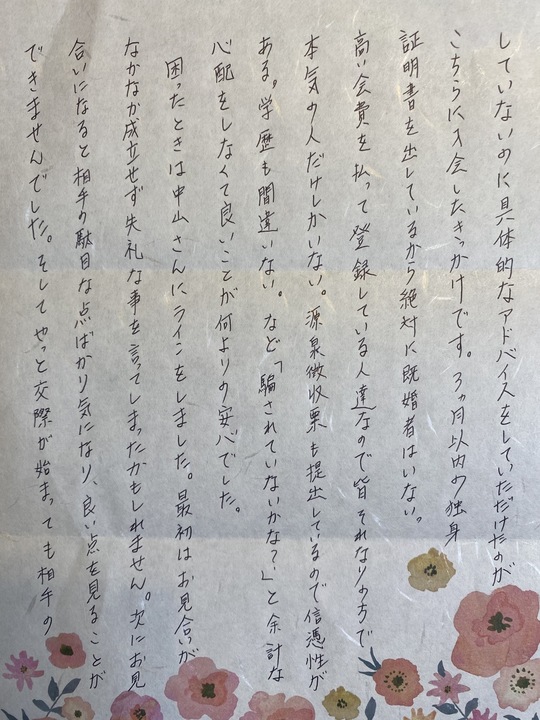 していないのに具体的なアドバイスをしていただけたのが
こちらに入会したきっかけです。3ヵ月以内の独身
証明書を出しているから絶対に既婚者はいない。
高い会費を払って登録している人達なので皆それなりのちで
本気の人だけしかいない。源泉徴収票も提出しているので信憑性が
ある。学歴も間違いない。など「騙されていないかな?」と余計な
心配をしなくて良いことが何よりの安心でした。
困ったときは中山さんにラインをしました。最初はお見合いが
なかなか成立せず失礼な事を言ってしまったかもしれません。次にお見
合いになると相手の駄目な点ばかり気になり、良い点を見ることが
できませんでした。そしてやっと交際が始まっても相手の